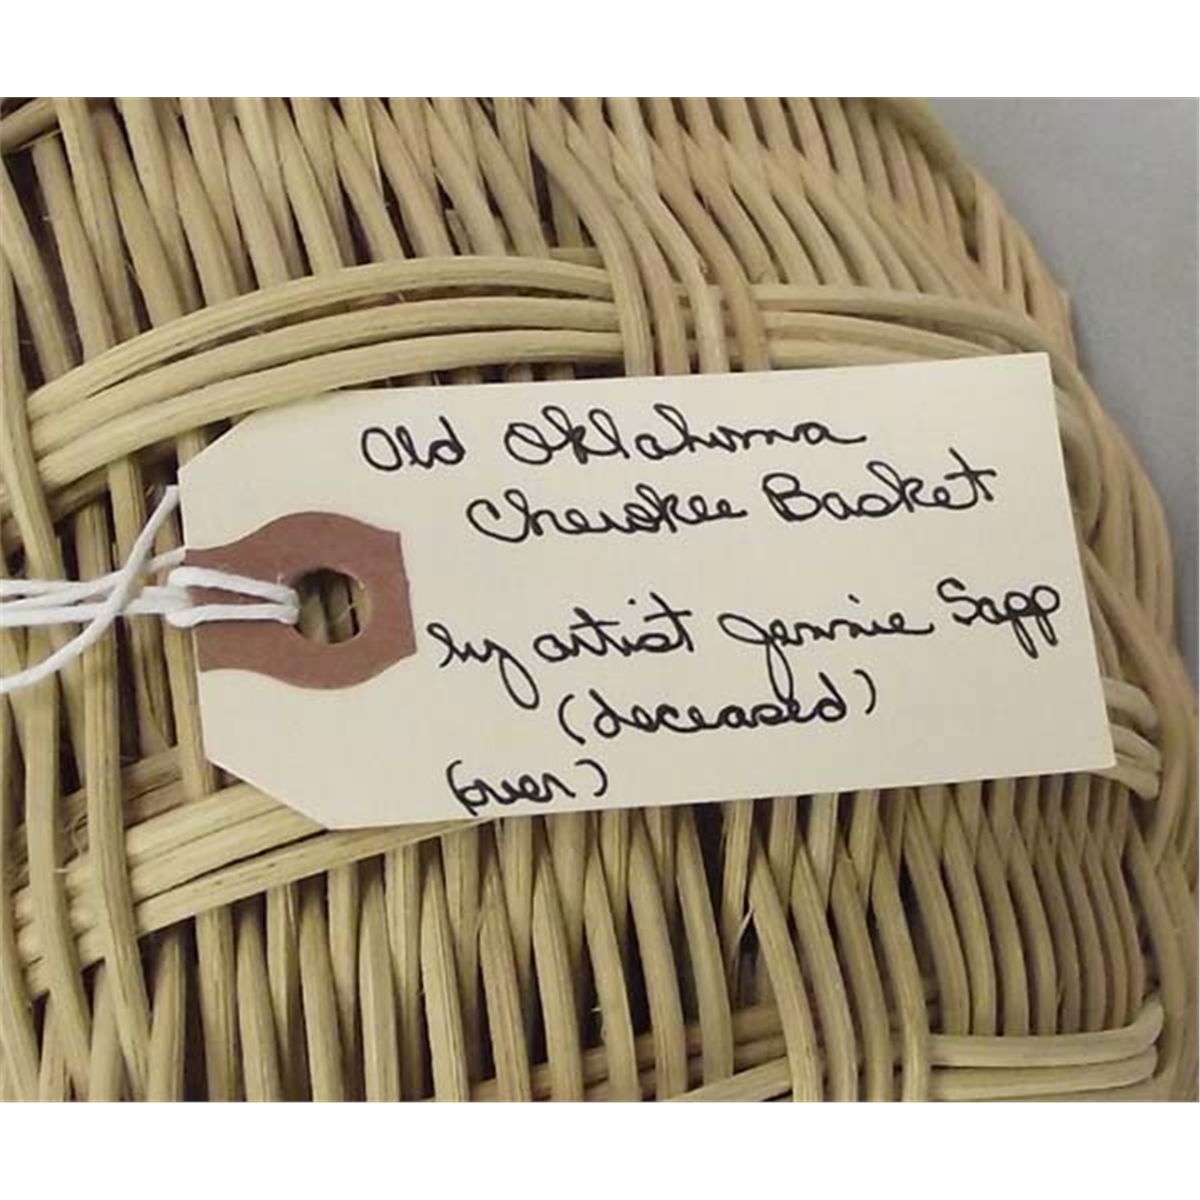 Old Oklahoma
Cherokee Basket
by artist Jennie Sapp
(deceased)
(over)